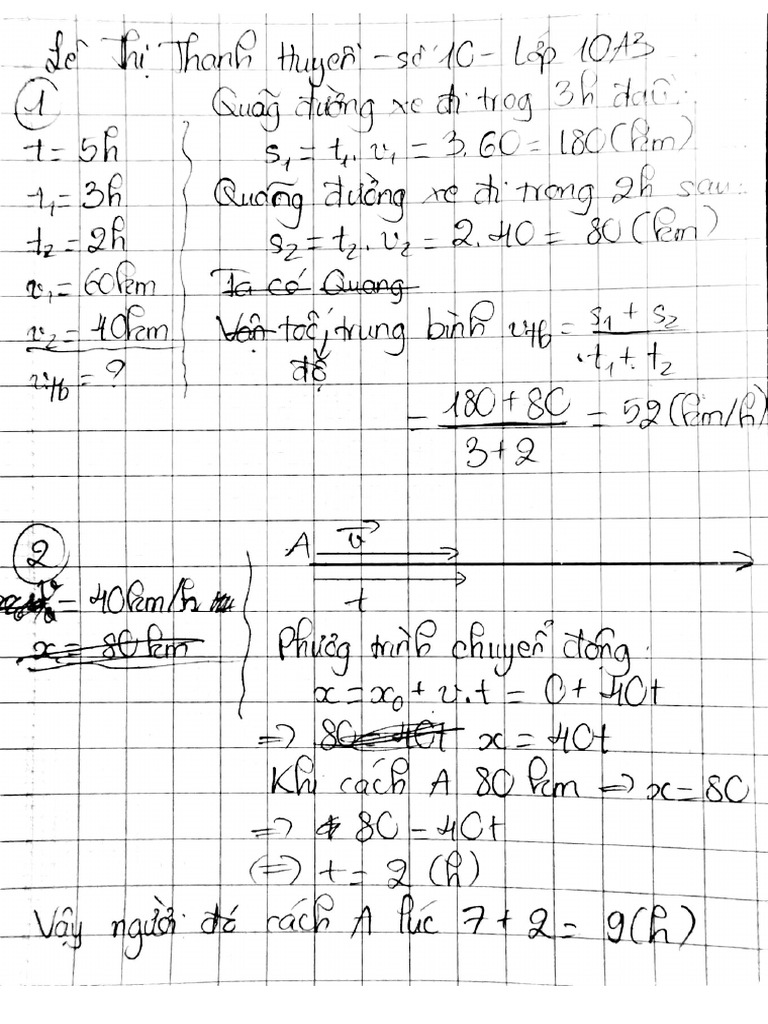 Lê Thị Thanh Huyền - số 10 - Lớp 10A3
1
t = 5h
t₁ = 3h
t₂ = 2h
v₁ = 60km
v₂ = 40km
vtb = ?
Quãg đường xe đi trog 3h đầu:
s₁ = t₁. v₁ = 3.60 = 180 (km)
Quãng đường xe đi trong 2h sau:
s₂ = t₂. v₂ = 2.40 = 80 (km)
Ta có Quang
Vận tốc, trung bình vtb = (s₁ + s₂)/(t₁ + t₂)
độ
= (180 + 80)/(3 + 2) = 52 (km/h)
2
v = 40km/h
x = 80km
A v
t
Phươg trình chuyển động:
x = x₀ + v.t = 0 + 40t
=> 80 = 40t x = 40t
Khi cách A 80 km => x = 80
=> 80 = 40t
(=>) t = 2 (h)
Vậy người đó cách A lúc 7 + 2 = 9(h)